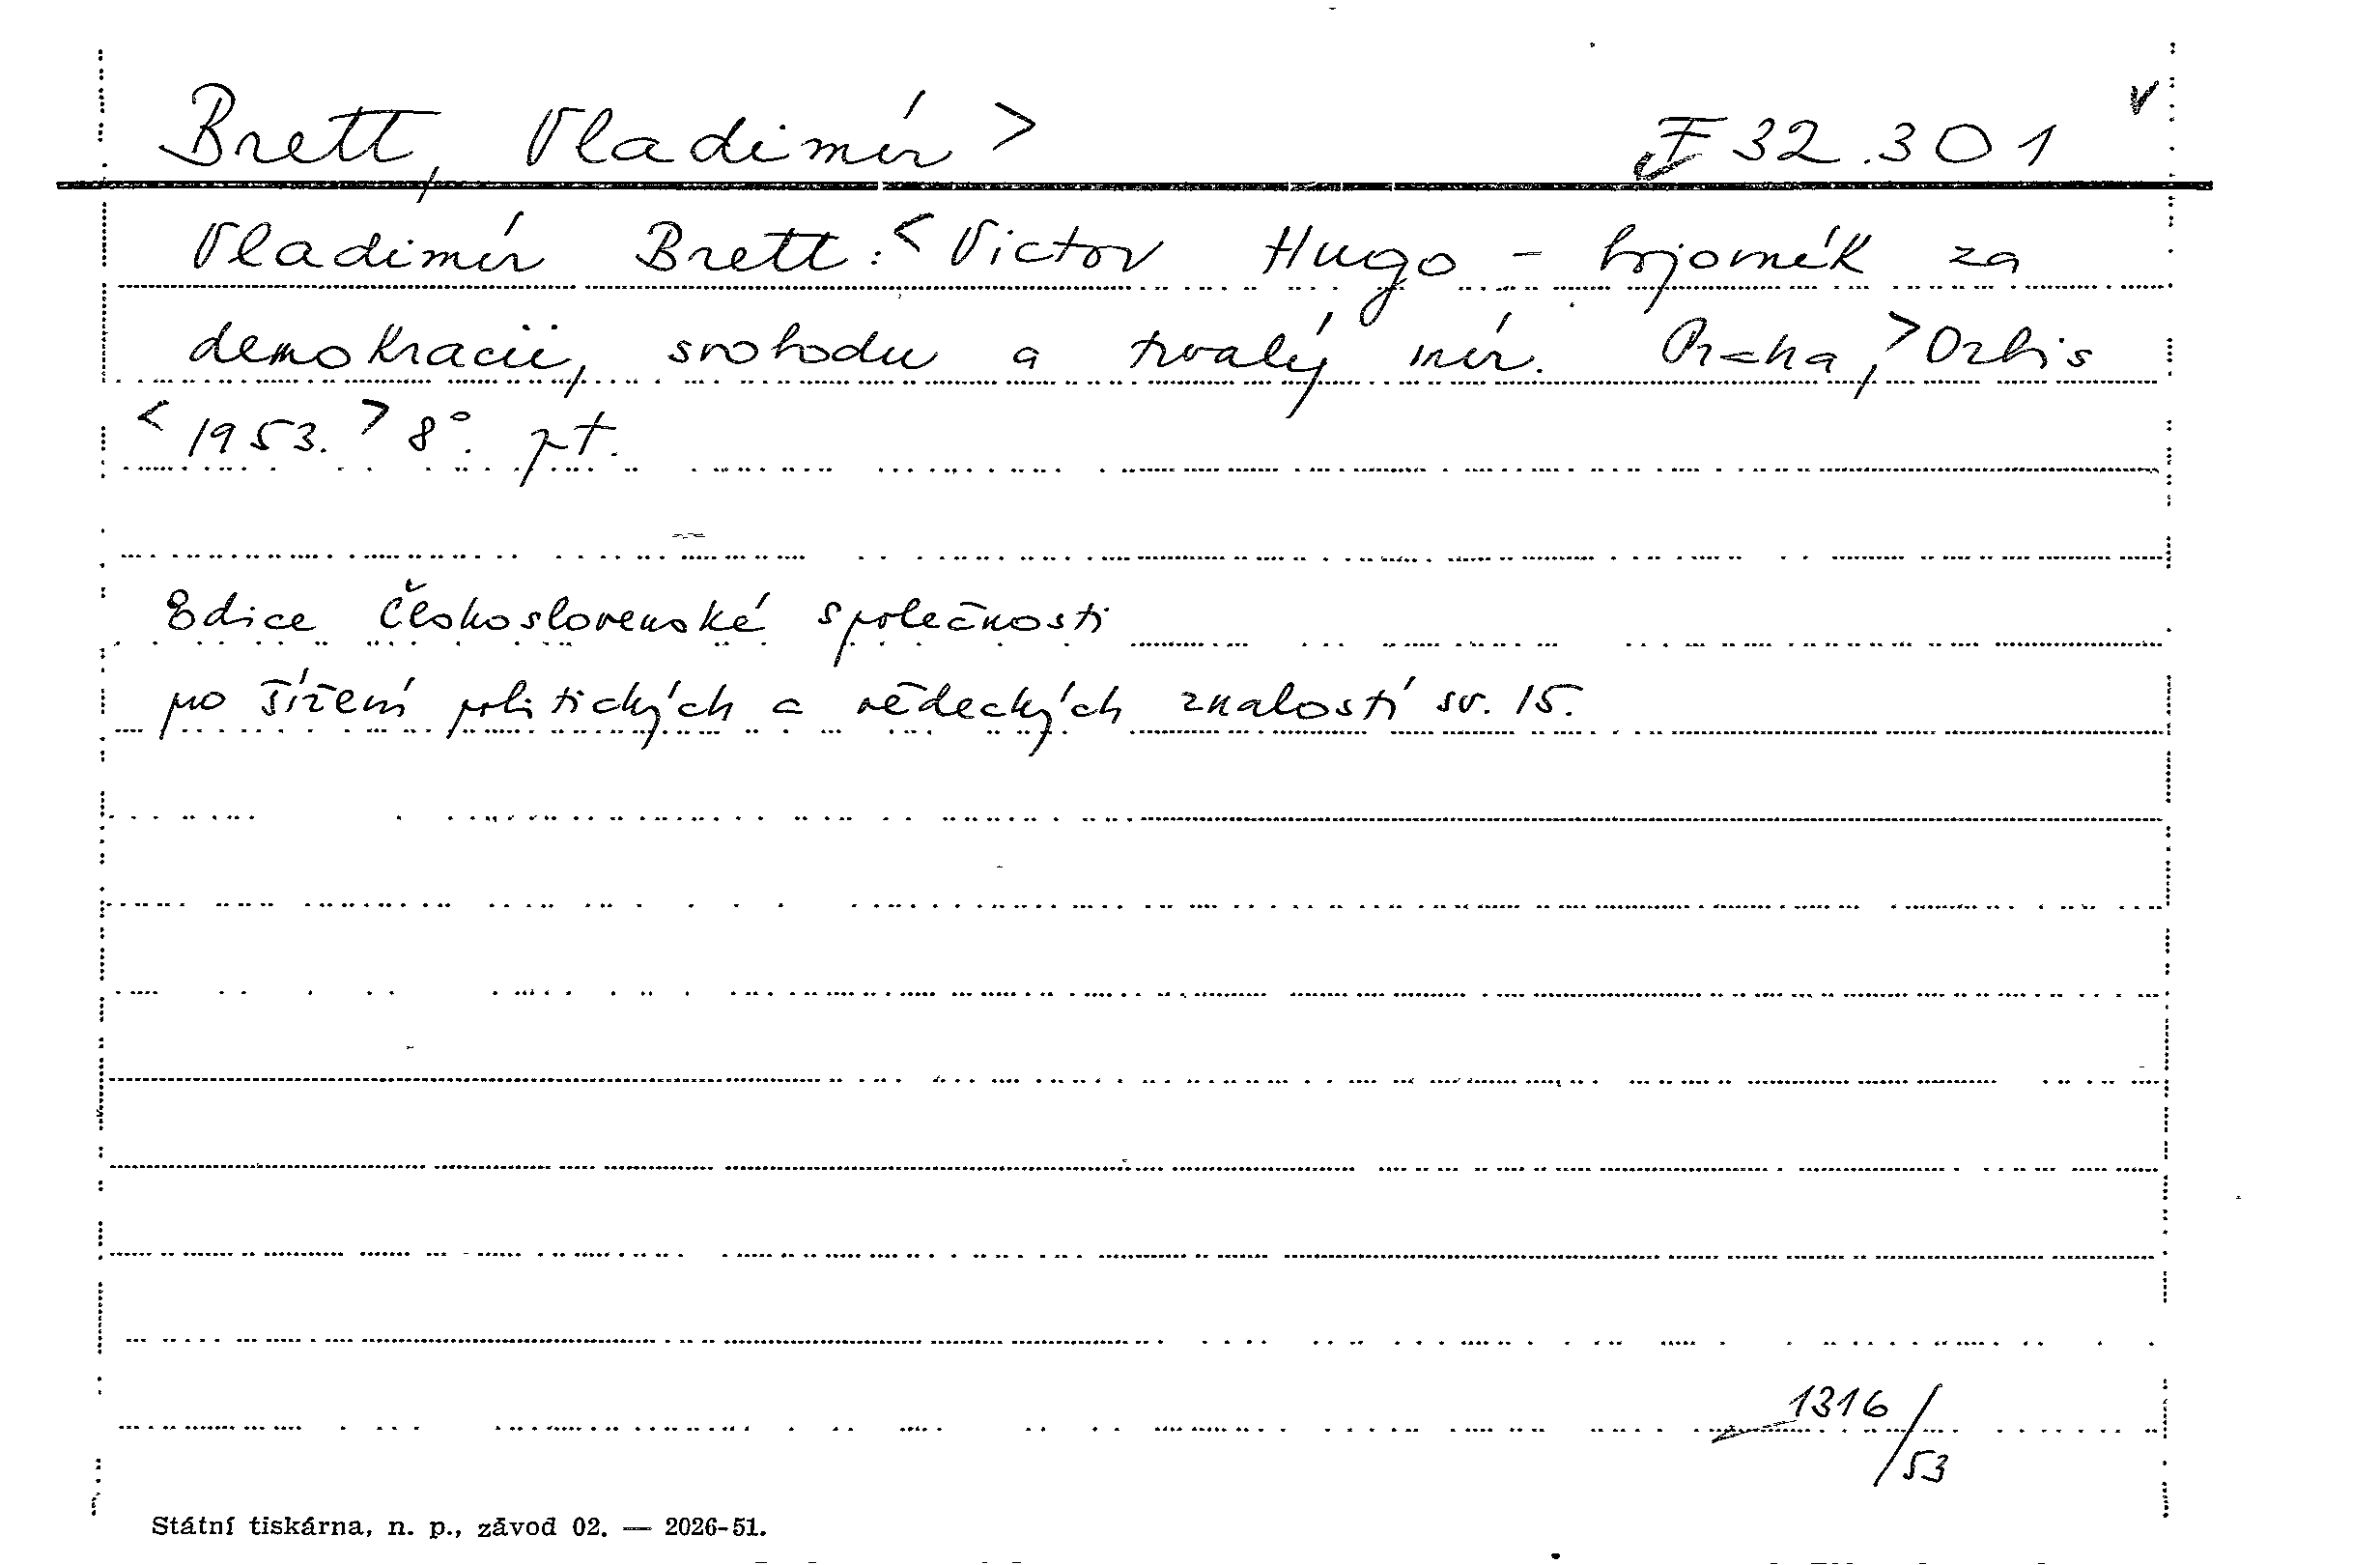 Brett, Vladimír > F 32.301 v
Vladimír Brett: < Victor Hugo - bojovník za
demokracii, svobodu a trvalý mír. Praha, > Orbis
< 1953. > 8°. pt.
Edice Československé společnosti
pro šíření politických a vědeckých znalostí sv. 15.
1316/53
Státní tiskárna, n. p., závod 02. — 2026-51.